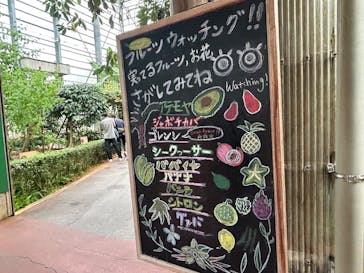 フルーツ ウォッチング!!
実ってるフルーツ、お花、
さがしてみてね
Watching!
アテモヤ
ジャボチカバ
ゴレンシ
シークヮーサー
パパイヤ
バナナ
シトロン